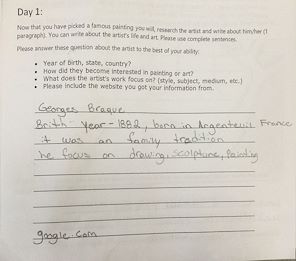 Day 1:
Now that you have picked a famous painting you will, research the artist and write about him/her (1
paragraph). You can write about the artist's life and art. Please use complete sentences.
Please answer these question about the artist to the best of your ability:
• Year of birth, state, country?
• How did they become interested in painting or art?
• What does the artist's work focus on? (style, subject, medium, etc.)
• Please include the website you got your information from.
Georges Braque
Brith - Year - 1882, born in Argenteuil France
it was an family tradition
he focus on drawing, Scolptane, Painting
google.com